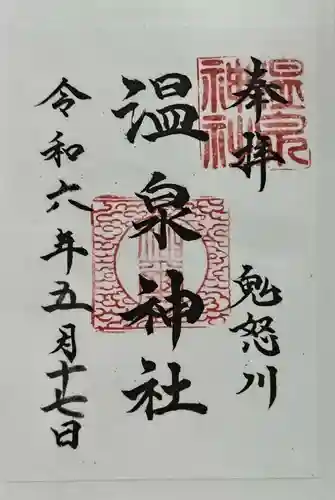 奉拝
鬼怒川
温泉神社
令和六年五月十七日
温泉
神社